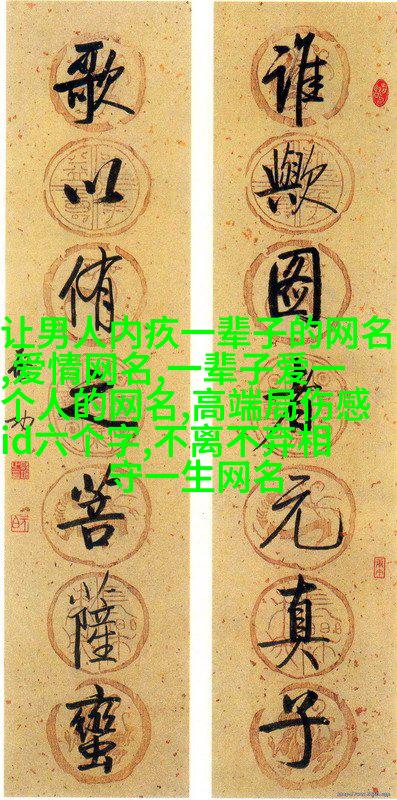 谁歟图者元真子
歌以侑之菩薩蠻
让男人内疚一辈子的网名
,爱情网名,一辈子爱一
个人的网名,高端局伤感
id六个字,不离不弃相
守一生网名